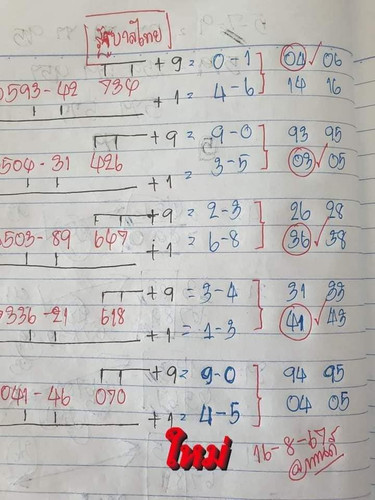 รัฐบาลไทย
+ 9 = 0 - 1 04 ✓ 06
0593 - 42 734
+ 1 = 4 - 6 14 16
+ 9 = 9 - 0 93 95
0504 - 31 426
+ 1 = 3 - 5 03 ✓ 05
+ 9 = 2 - 3 26 28
0503 - 89 647
+ 1 = 6 - 8 36 ✓ 38
+ 9 = 3 - 4 31 33
0336 - 21 618
+ 1 = 1 - 3 41 ✓ 43
+ 9 = 9 - 0 94 95
041 - 46 070
+ 1 = 4 - 5 04 05
ใหม่ 16 - 8 - 67